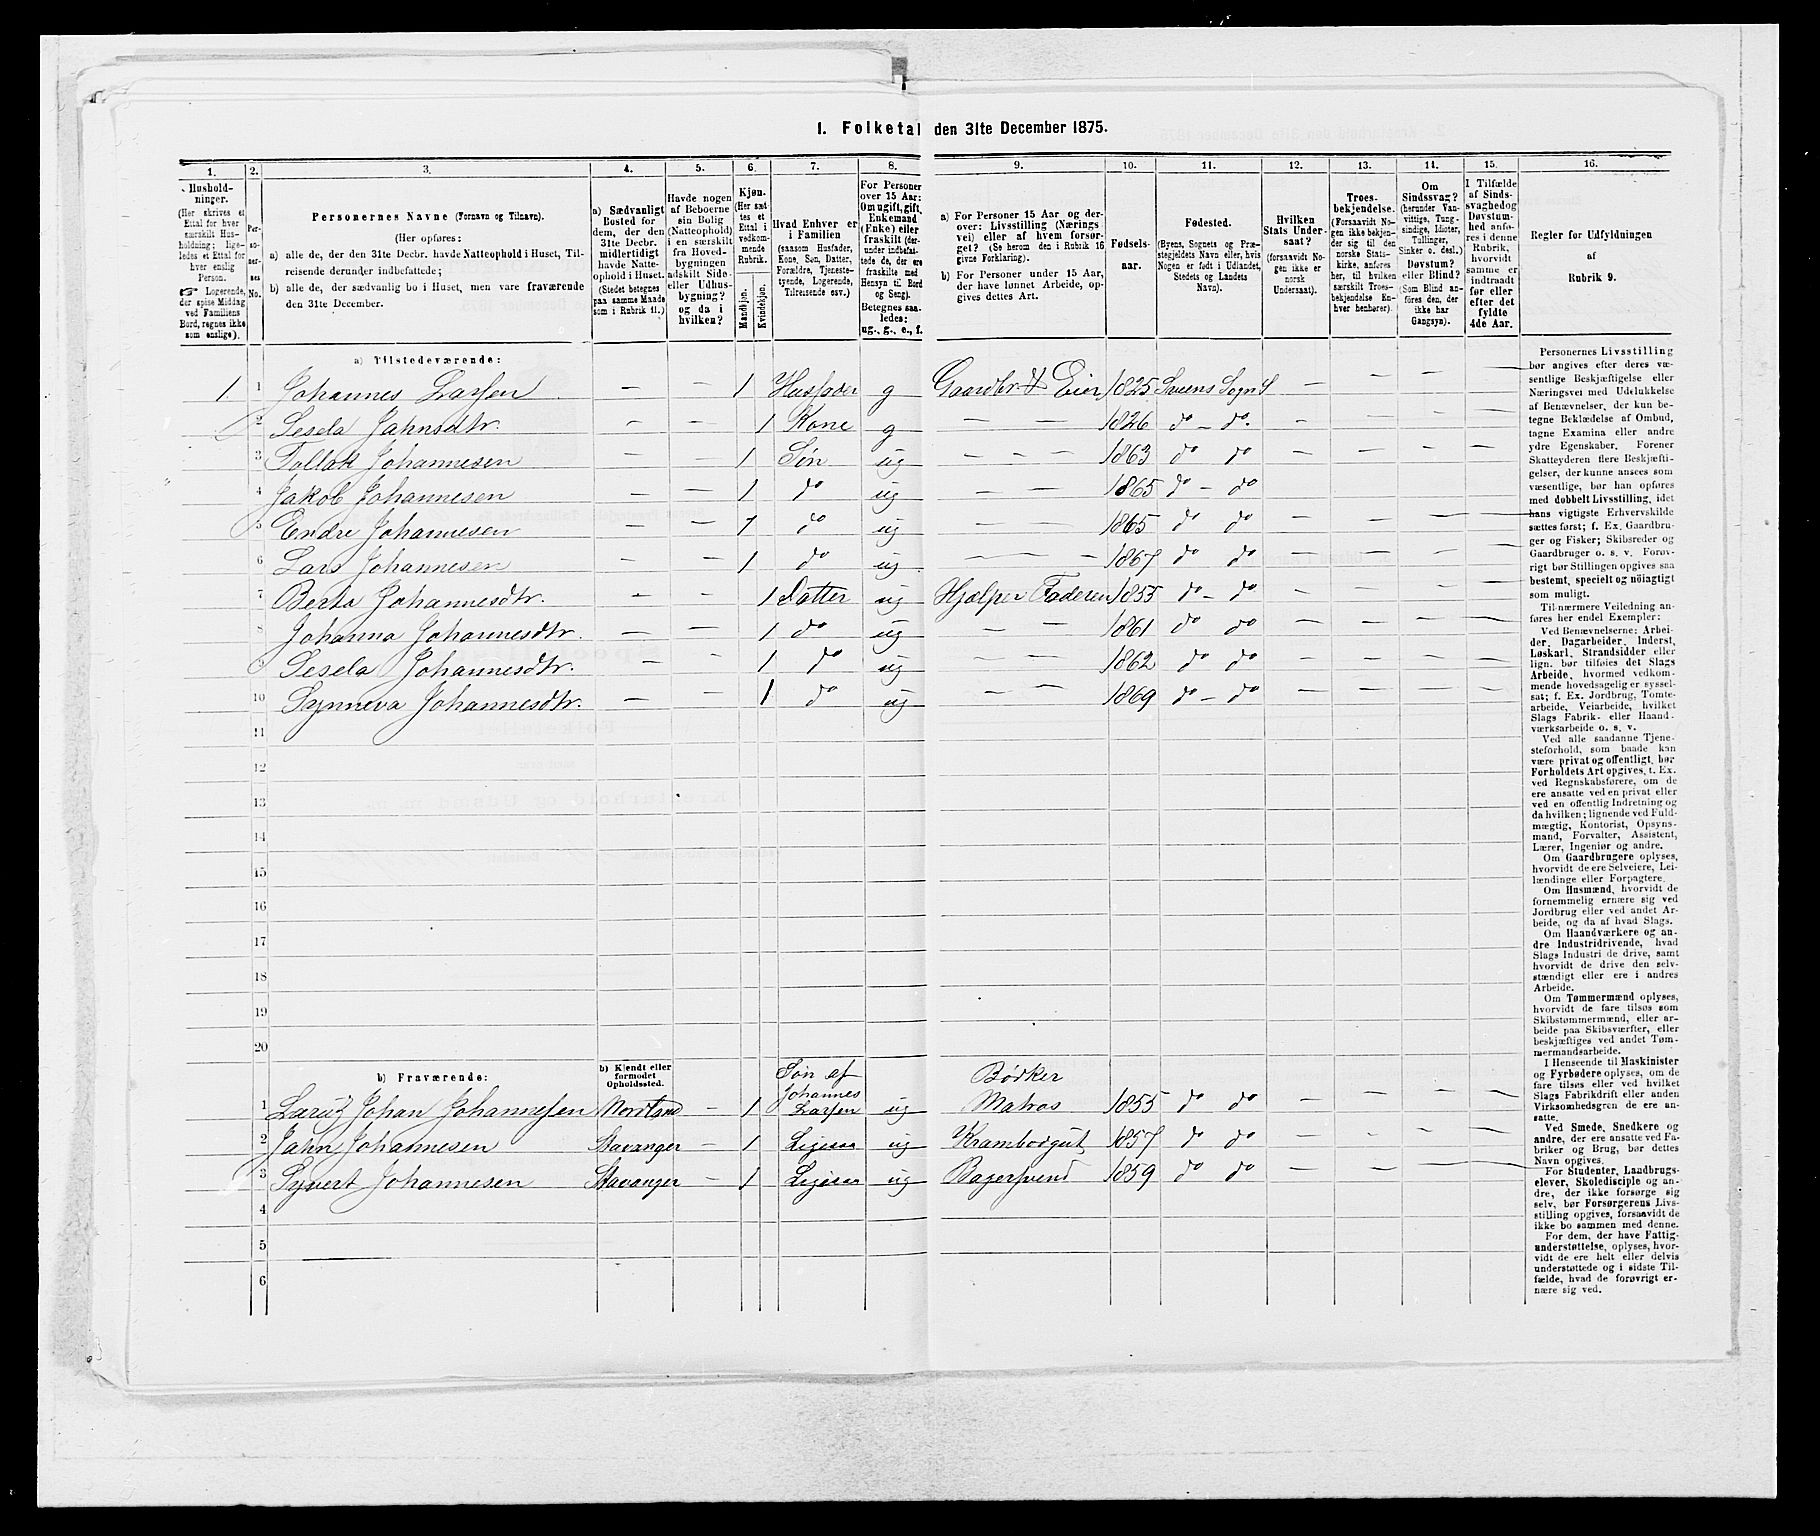 1. Folketal den 31te December 1875.
1. 2. 3. 4. 5. 6. 7. 8. 9. 10. 11. 12. 13. 14. 15. 16.
Hushold-
ninger.
(Her skrives et
Ettal for hver
særskilt Hus-
holdning; lige-
ledes et Ettal for
hver enslig
Person.
☞ Logerende,
der spise Middag
ved Familiens
Bord, regnes ikke
som enslige).
Per-
so-
ner-
nes
No.
Personernes Navne (Fornavn og Tilnavn).
(Her opføres:
a) alle de, der den 31te Decbr. havde Natteophold i Huset, Til-
reisende derunder indbefattede;
b) alle de, der sædvanlig bo i Huset, men vare fraværende
den 31te December.
a) Sædvanligt
Bosted for
dem, der den
31te Decbr.
midlertidigt
havde Natte-
ophold i Huset.
(Stedet betegnes
paa samme Maade
som i Rubrik 11.)
Havde nogen
af Beboerne
sin Bolig
(Natteophold)
i en særskilt
fra Hoved-
bygningen
adskilt Side-
eller Udhus-
bygning?
og da i
hvilken?
Kjøn.
(Her sæt-
tes et
Ettal i
vedkom-
mende
Rubrik.
Mandkjøn.
Kvindekjøn.
Hvad Enhver er
i Familien
(saasom Husfader,
Kone, Søn, Datter,
Forældre, Tjeneste-
tyende, Logerende,
Tilreisende osv.)
For Personer
over 15 Aar:
Om ugift, gift,
Enkemand
(Enke) eller
fraskilt (der-
under indbefat-
tede de, der ere
fraskilte med
Hensyn til Bord
og Seng).
Betegnes saa-
ledes:
ug., g., e., f.
a) For Personer 15 Aar og der-
over: Livsstilling (Nærings-
vei) eller af hvem forsør-
get? (Se herom den i Rubrik 16
givne Forklaring).
b) For Personer under 15 Aar,
der have lønnet Arbeide, op-
gives dettes Art.
Fødsels-
aar.
Fødested.
(Byens, Sognets og Præ-
stegjeldets Navn eller, hvis
Nogen er født i Udlandet,
Stedets og Landets
Navn).
Hvilken
Stats Under-
saat?
(forsaavidt No-
gen ikke er
norsk
Undersaat).
Troes-
bekjendelse.
(Forsaavidt No-
gen ikke bekjen-
der sig til den
norske Stats-
kirke, anføres
her, til hvilken
særskilt Troes-
bekjendelse En-
hver henhører).
Om
Sindssvag?
(herunder Van-
vittige, Tung-
sindige, Idioter,
Tullinger,
Sinker o. desl.)
Døvstum?
eller Blind?
(Som Blind an-
føres den, der
ikke har
Gangsyn).
I Tilfælde
af Sinds-
svaghed og
Døvstum-
hed anfø-
res i denne
Rubrik,
hvorvidt
samme er
indtraadt
før eller
efter det
fyldte
4de Aar.
Regler for Udfyldningen
af
Rubrik 9.
a) Tilstedeværende:
1 1 Johannes Larsen — — 1 Husfader g Gaardbr & Eier 1825 Sveens Sogn — — — —
2 Sesela Jahnsdtr. — — 1 Kone g 1826 do — do. — — — —
3 Tollak Johannesen — — 1 Søn ug — — — 1863 do do — — — —
4 Jakob Johannesen — — 1 do ug — — 1865 do — do — — — —
5 Endre Johannesen — — 1 do ug 1865 do do — — — —
6 Lars Johannesen — — 1 do ug — — — 1867 do do — — — —
7 Berta Johannesdtr. — — 1 Datter ug Hjælper Faderen 1855 do — do — — — —
8 Johanna Johannesdtr. — — 1 do ug — — 1861 do do — — — —
9 Sesela Johannesdtr. — — 1 do ug — — 1862 do do — — — —
10 Synneva Johannesdtr. — — 1 do ug — — 1869 do — do — — — —
11
12
13
14
15
16
17
18
19
20
b) Fraværende:
b) Kjendt eller
formodet
Opholdssted.
Søn af Bødker
1 Johan Johannesen Nordland — 1 Johannes Larsen ug Matros 1855 do do — — — —
2 Jahn Johannesen Stavanger — 1 Ligesaa ug Krambodgut 1857 do do — — — —
3 Syvert Johannesen Stavanger — 1 Ligesaa ug Bagersvend 1859 do do — — — —
4
5
6
Personernes Livsstilling
bør angives efter deres væ-
sentlige Beskjæftigelse eller
Næringsvei med Udelukkelse
af Benævnelser, der kun be-
tegne Beklædelse af Ombud,
tagne Examina eller andre
ydre Egenskaber. Forener
Skatteyderen flere Beskjæfti-
gelser, der kunne ansees som
væsentlige, bør han opføres
med dobbelt Livsstilling, idet
hans vigtigste Erhvervskilde
sættes først; f. Ex. Gaardbru-
ger og Fisker; Skibsreder og
Gaardbruger o. s. v. Forøv-
rigt bør Stillingen opgives saa
bestemt, specielt og nöiagtigt
som muligt.
Til nærmere Veiledning an-
føres her endel Exempler:
Ved Benævnelserne: Arbei-
der, Dagarbeider, Inderst,
Løskarl, Strandsidder eller
lign. bør tilføies det Slags
Arbeide, hvormed vedkom-
mende hovedsagelig er syssel-
sat; f. Ex. Jordbrug, Tomte-
arbeide, Veiarbeide, hvilket
Slags Fabrik- eller Haand-
værksarbeide o. s. v.
Ved alle saadanne Tjene-
steforhold, som baade kan
være privat og offentligt, bør
Forholdets Art opgives, t. Ex.
ved Regnskabsførere, om de
ere ansatte ved en privat eller
ved en offentlig Indretning og
da hvilken; lignende ved Fuld-
mægtig, Kontorist, Opsyns-
mand, Forvalter, Assistent,
Lærer, Ingeniør og andre.
Om Gaardbrugere oplyses,
hvorvidt de ere Selveiere, Lei-
lændinge eller Forpagtere.
Om Husmænd, hvorvidt de
fornemmelig ernære sig ved
Jordbrug eller ved andet Ar-
beide, og da af hvad Slags.
Om Haandværkere og an-
dre Industridrivende, hvad
Slags Industri de drive, samt
hvorvidt de drive den selv-
stændigt eller ere i andres
Arbeide.
Om Tømmermænd oplyses,
hvorvidt de fare tilsøs som
Skibstømmermænd, eller ar-
beide paa Skibsværfter, eller
beskjæftiges ved andet Tøm-
mermandsarbeide.
I Henseende til Maskinister
og Fyrbødere oplyses, om de
fare tilsøs eller ved hvilket
Slags Fabrikdrift eller anden
Virksomhedsgren de ere an-
satte.
Ved Smede, Snedkere og
andre, der ere ansatte ved Fa-
briker og Brug, bør dettes
Navn opgives.
For Studenter, Landbrugs-
elever, Skoledisciple og an-
dre, der ikke forsørge sig
selv, bør Forsørgerens Livs-
stilling opgives, forsaavidt de
ikke bo sammen med denne.
For dem, der have Fattig-
understøttelse, oplyses, hvor-
vidt de ere helt eller delvis
understøttede og i sidste Til-
fælde, hvad de forøvrigt er-
nære sig ved.